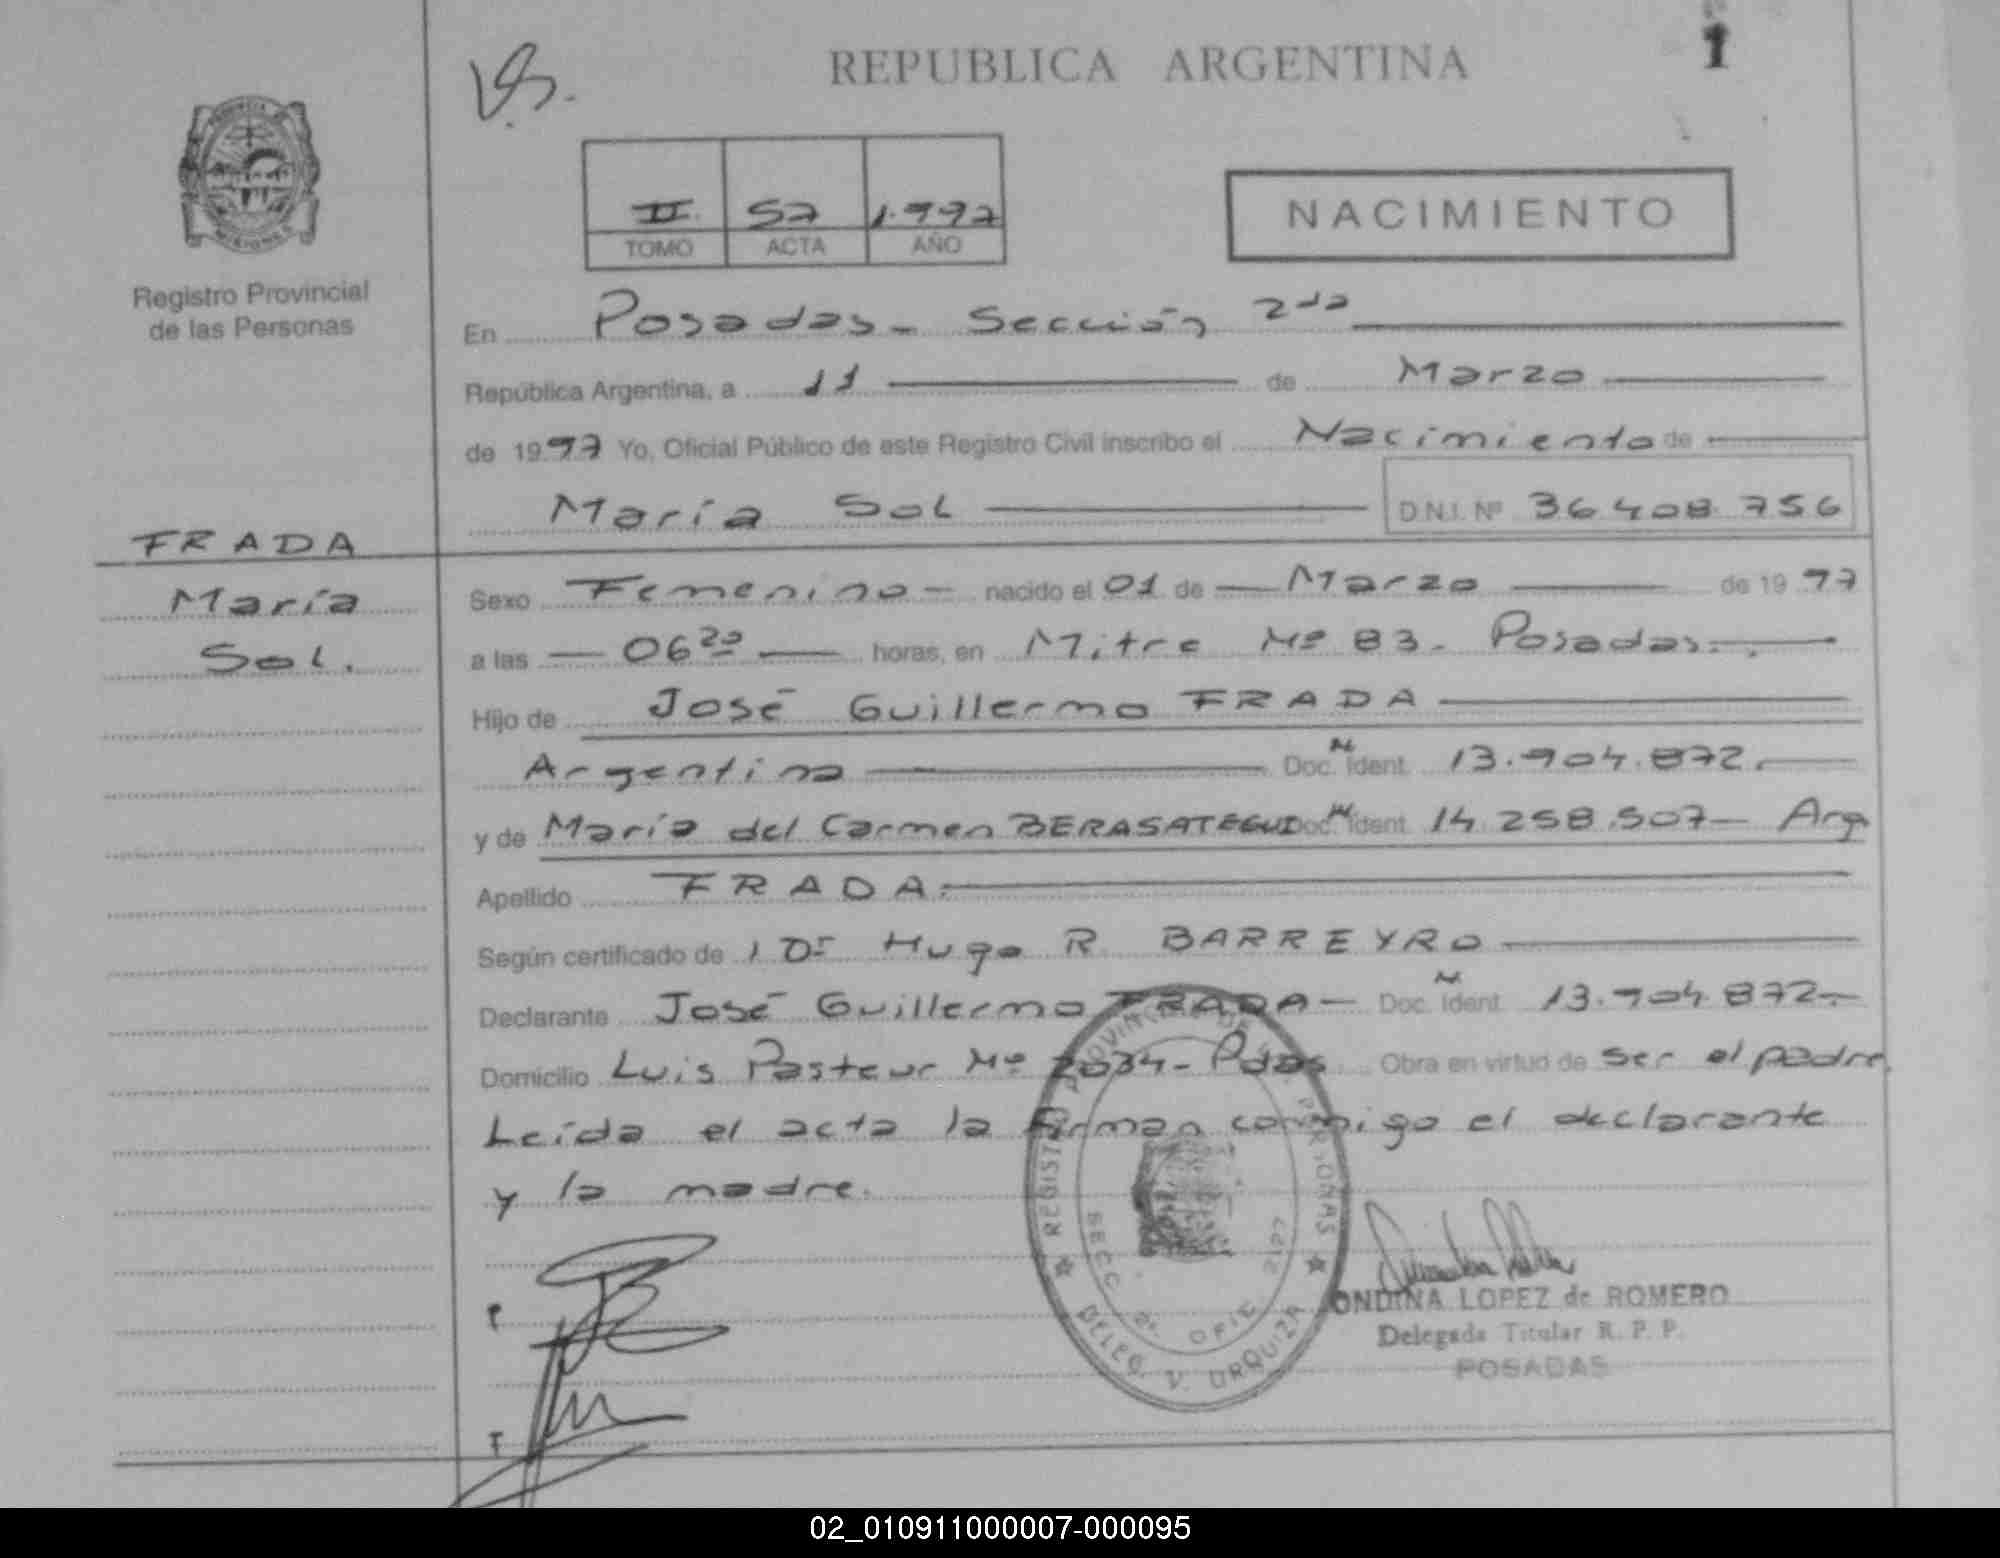 REPUBLICA ARGENTINA
1
II. 57 1.997
TOMO ACTA AÑO
NACIMIENTO
PROVINCIA DE MISIONES
Registro Provincial
de las Personas
En Posadas - Sección 2da
República Argentina, a 11 de Marzo
de 1997 Yo, Oficial Público de este Registro Civil inscribo el Nacimiento de
María Sol D.N.I. Nº 36.408.756
FRADA
María
Sol.
Sexo Femenino - nacido el 01 de Marzo de 1997
a las 06 horas, en Mitre Nº 83 - Posadas.
Hijo de José Guillermo FRADA
Argentina Doc. Ident. 13.904.872.
y de María del Carmen BERASATEGUI Doc. Ident. 14.258.507 - Arg
Apellido FRADA.
Según certificado de l Dr Hugo R. BARREYRO
Declarante José Guillermo FRADA - Doc. Ident. 13.904.872.-
Domicilio Luis Pasteur Nº 2034 - Pdas Obra en virtud de ser el padre.
Leída el acta la firman conmigo el declarante
y la madre.
P
T
REGISTRO PROVINCIAL DE LAS PERSONAS
SECC. 2a. OFIC. 2127
DELEG. V. URQUIZA
ONDINA LOPEZ de ROMERO
Delegada Titular R. P. P.
POSADAS
02_010911000007-000095